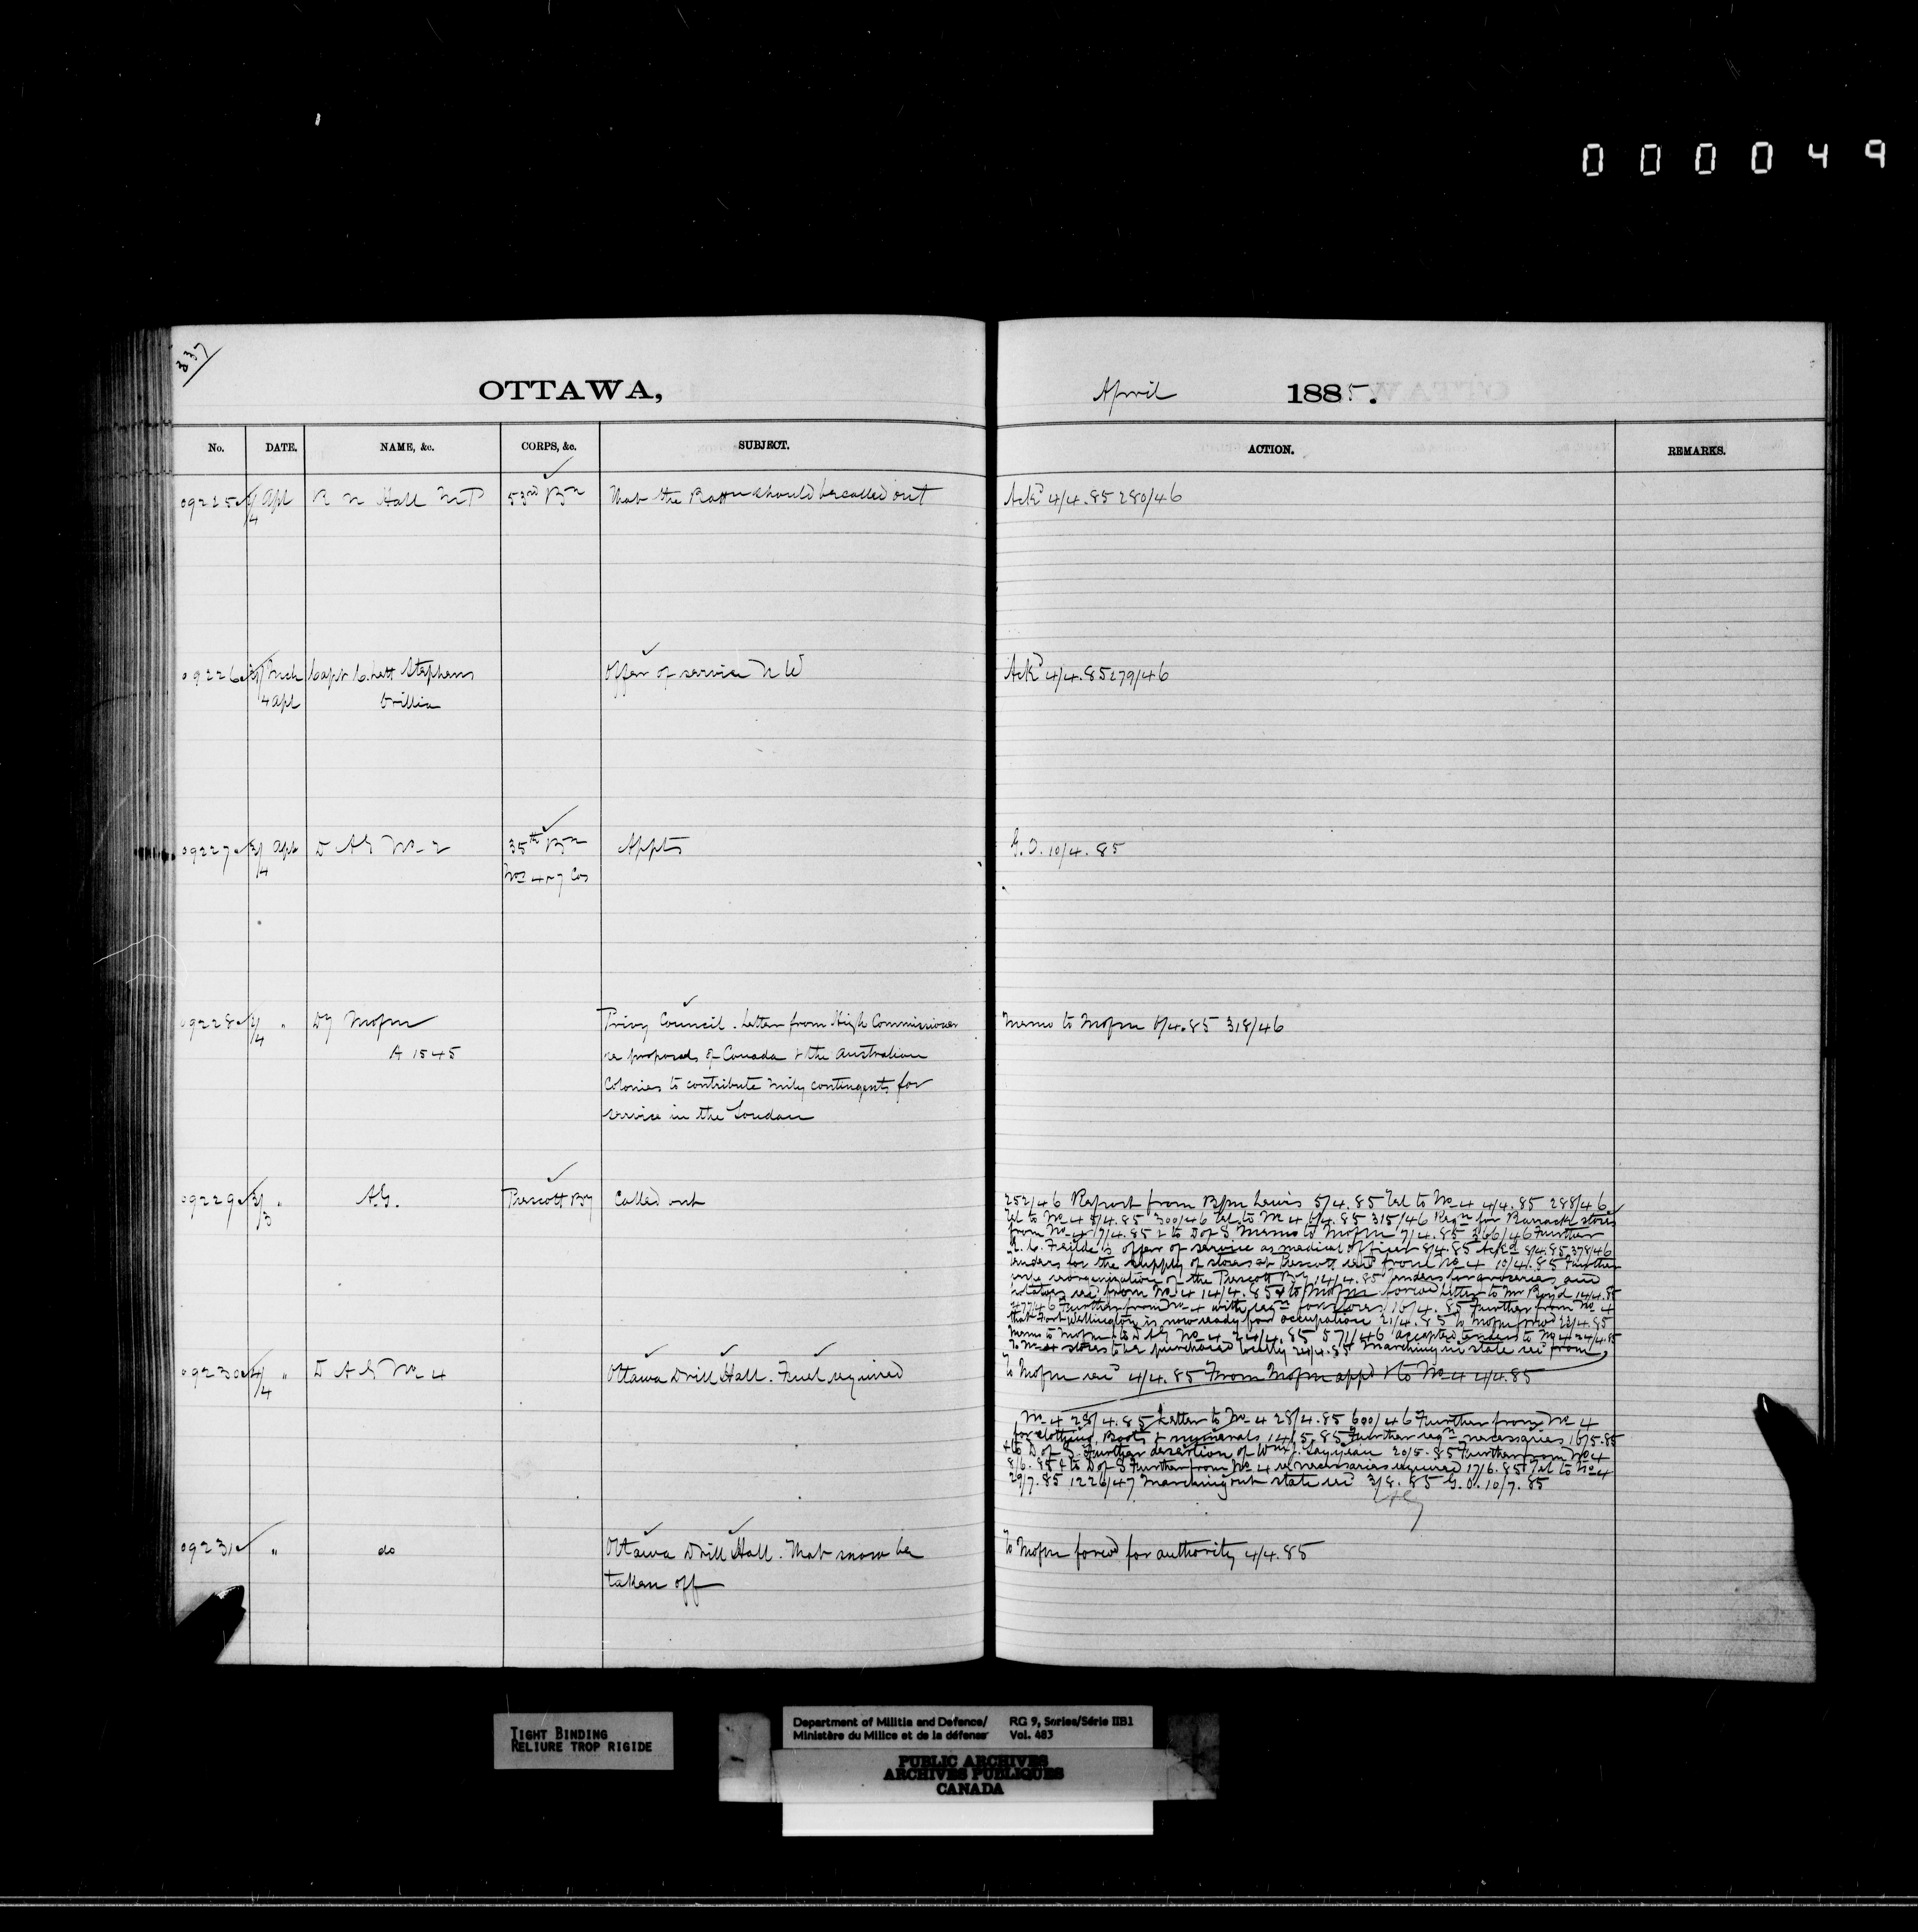 000049
337
OTTAWA,
April 1885.
No. DATE. NAME, &c. CORPS, &c. SUBJECT. ACTION. REMARKS.
09225 4/4 Apl R N Hall M.P 53rd Bn That the Battn should be called out Ackd 4/4.85 280/46
09226 Mch Capt C. Lett Stephens Offer of service N W Ackd 4/4.85 279/46
4 Apl Orillia
09227 3/4 Apl D A G No 2 35th Bn Appts G.O. 10/4.85
Nos 4 & 7 Cos
09228 2/4 " Dy Mofm Privy Council. Letter from High Commissioner Memo to Mofm 6/4.85 318/46
A 1545 re proposals of Canada & the Australian
Colonies to contribute mily contingents for
service in the Soudan
09229 3/3 " A.G. Prescott By Called out
252/46 Report from Bpm Lewis 5/4.85 Tel to No 4 4/4.85 288/46
Tel to No 4 5/4.85 300/46 Tel to No 4 6/4.85 315/46 Reqn for Barrack stores
from No 4 7/4.85 & to D of S Memo to Mofm 7/4.85 366/46 Further
offer of service as medical officer 8/4.85 Ackd 8/4.85 378/46
tenders for the supply of stores at Prescott recd from No 4 10/4.85 Further
reorganization of the Prescott By 14/4.85 tenders for groceries and
potatoes recd from No 4 14/4.85 & to Mofm forwd Letter to Mr Boyd 14/4.85
477/46 Further from No 4 with reqn for stores 16/4.85 Further from No 4
that Fort Wellington is now ready for occupation 21/4.85 To Mofm forwd 22/4.85
Memo to Mofm & to D A G No 4 24/4.85 571/46 accepted tenders to No 4 24/4.85
To No 4 stores to be purchased locally 24/4.85 Marching in state recd from
09230 4/4 " D A G No 4 Ottawa Drill Hall. Fuel required To Mofm recd 4/4.85 From Mofm appd & to No 4 4/4.85
No 4 28/4.85 Letter to No 4 28/4.85 600/46 Further from No 4
for clothing, Boots & numerals 14/5.85 Further reqn necessaries 16/5.85
& to D of S. Further desertion of Wm J. 20/5.85 Further from No 4
8/6.85 & to D of S Further from No 4 re necessaries required 17/6.85 Tel to No 4
29/7.85 1226/47 Marching out state recd 3/8.85 G.O. 10/7.85
09231 " do Ottawa Drill Hall. That snow be To Mofm forwd for authority 4/4.85
taken off
TIGHT BINDING
RELIURE TROP RIGIDE
Department of Militia and Defence/ RG 9, Series/Série IIB1
Ministère du Milice et de la défense Vol. 483
PUBLIC ARCHIVES
ARCHIVES PUBLIQUES
CANADA